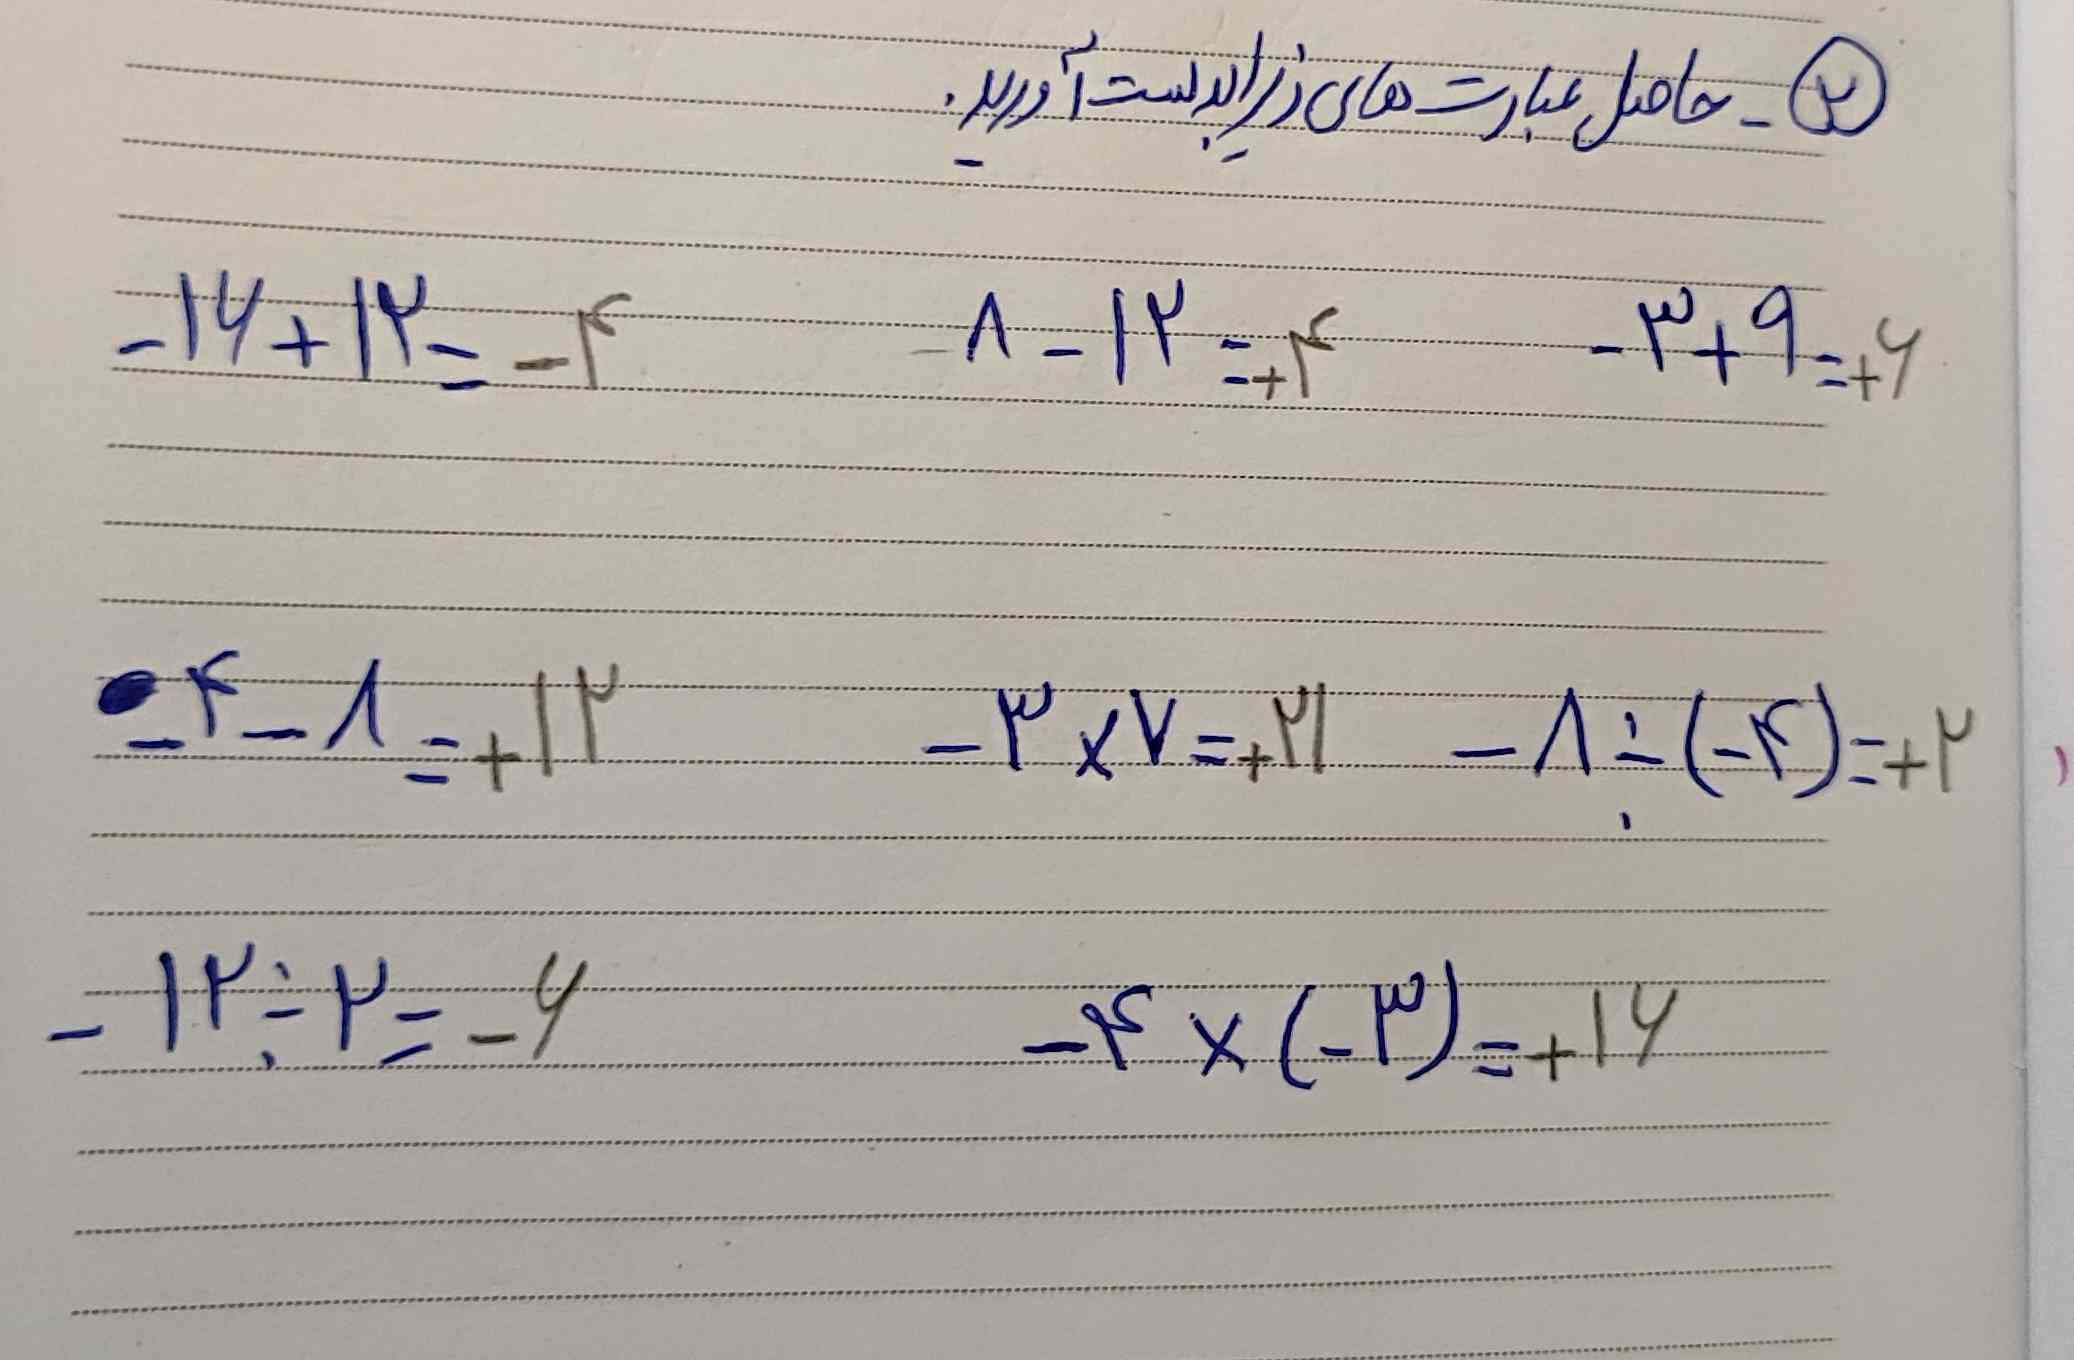 ۲- حاصل عبارت های زیر را بدست آورید.
-۱۶+۱۲=-۴ ۸-۱۲=+۴ -۳+۹=+۶
-۴-۸=+۱۲ -۳×۷=+۲۱ -۸÷(-۴)=+۲
-۱۲÷۲=-۶ -۴×(-۳)=+۱۶